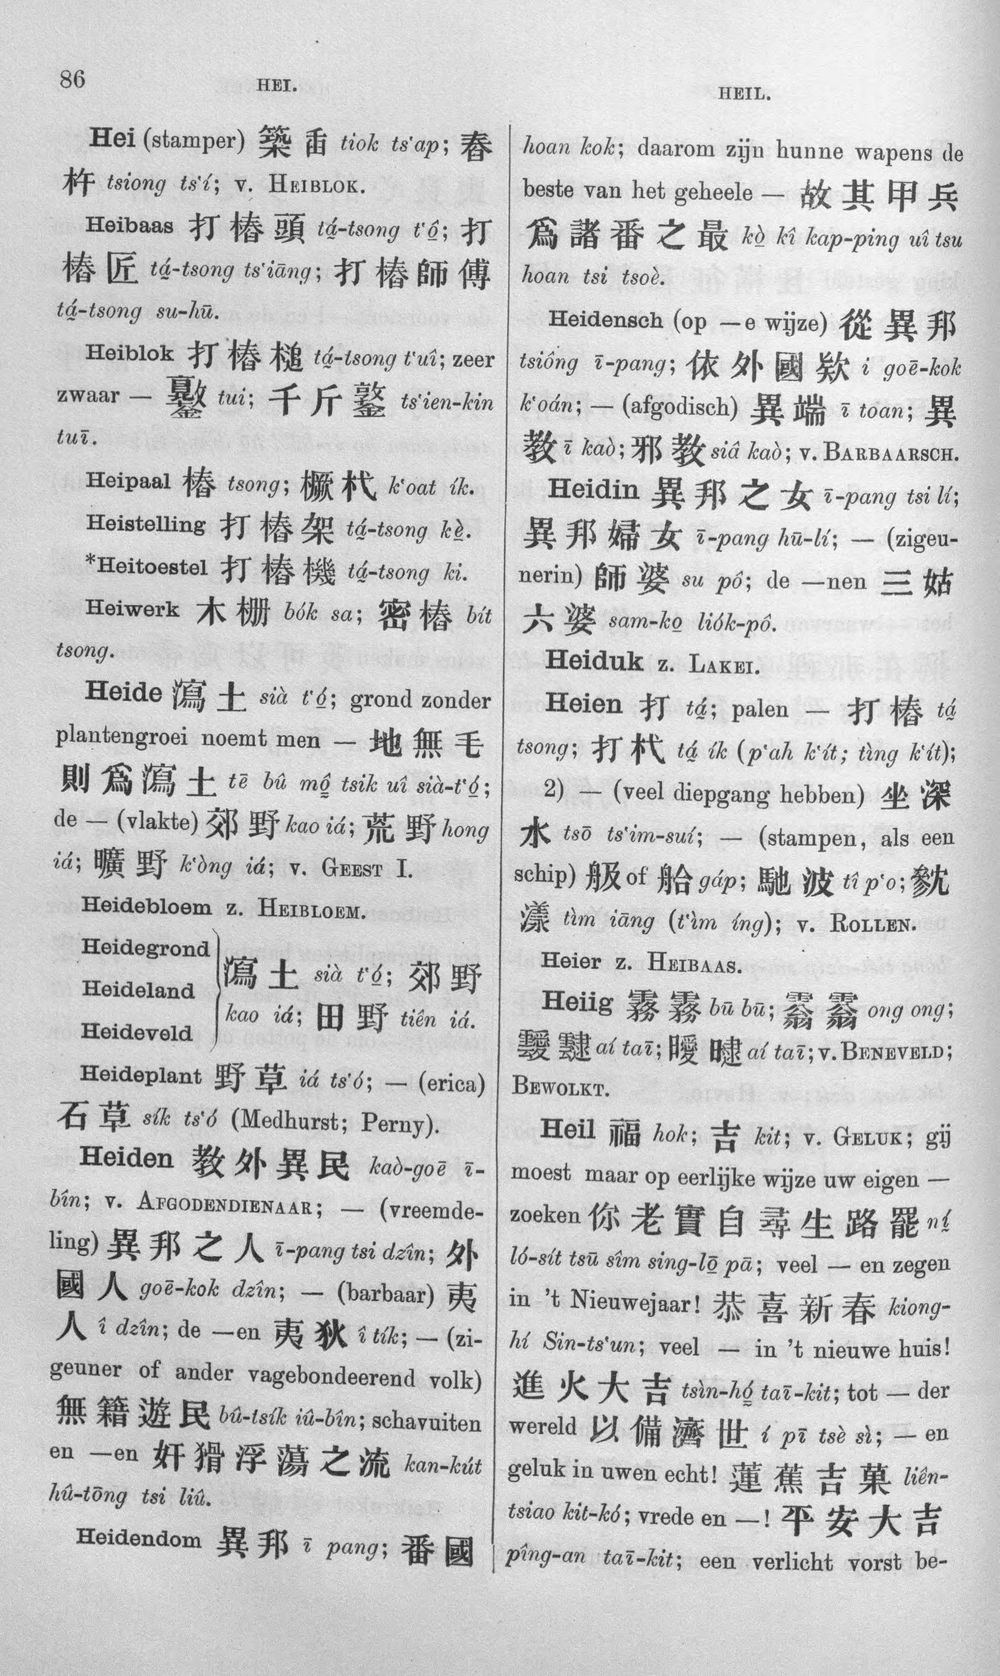 86
HEI.
HEIL.
Hei (stamper) 築臿 tiok ts‘ap; 舂
杵 tsiong ts‘í; v. HEIBLOK.
Heibaas 打樁頭 tá̤-tsong t‘ô̤; 打
樁匠 tá̤-tsong ts‘iāng; 打樁師傅
tá̤-tsong su-hū.
Heiblok 打樁槌 tá̤-tsong t‘uî; zeer
zwaar — tui; 千斤 ts‘ien-kin
tuī.
Heipaal 樁 tsong; 橛杙 k‘oat ík.
Heistelling 打樁架 tá̤-tsong kè̤.
*Heitoestel 打樁機 tá̤-tsong ki.
Heiwerk 木栅 bók sa; 密樁 bít
tsong.
Heide 瀉土 sià t‘ó̤; grond zonder
plantengroei noemt men — 地無毛
則爲瀉土 tē bû mô̤ tsik uî sià-t‘ó̤;
de — (vlakte) 郊野 kao iá; 荒野 hong
iá; 曠野 k‘òng iá; v. GEEST I.
Heidebloem z. HEIBLOEM.
Heidegrond
Heideland
Heideveld
瀉土 sià t‘ó̤; 郊野
kao iá; 田野 tiên iá.
Heideplant 野草 iá ts‘ó; — (erica)
石草 sík ts‘ó (Medhurst; Perny).
Heiden 教外異民 kaò-goē ī-
bîn; v. AFGODENDIENAAR; — (vreemde-
ling) 異邦之人 ī-pang tsi dzîn; 外
國人 goē-kok dzîn; — (barbaar) 夷
人 î dzîn; de —en 夷狄 î tík; — (zi-
geuner of ander vagebondeerend volk)
無籍遊民 bû-tsík iû-bîn; schavuiten
en —en 奸猾浮蕩之流 kan-kút
hû-tōng tsi liû.
Heidendom 異邦 ī pang; 番國
hoan kok; daarom zijn hunne wapens de
beste van het geheele — 故其甲兵
爲諸番之最 kò̤ kî kap-ping uî tsu
hoan tsi tsoè.
Heidensch (op —e wijze) 從異邦
tsiông ī-pang; 依外國欵 i goē-kok
k‘oán; — (afgodisch) 異端 ī toan; 異
教 ī kaò; 邪教 siâ kaò; v. BARBAARSCH.
Heidin 異邦之女 ī-pang tsi lí;
異邦婦女 ī-pang hū-lí; — (zigeu-
nerin) 師婆 su pô; de —nen 三姑
六婆 sam-ko̤ liók-pô.
Heiduk z. LAKEI.
Heien 打 tá̤; palen — 打樁 tá̤
tsong; 打杙 tá̤ ík (p‘ah k‘ít; tìng k‘ít);
2) — (veel diepgang hebben) 坐深
水 tsō ts‘im-suí; — (stampen, als een
schip) 舣 of 艙 gáp; 馳波 tî p‘o;
漾 tìm iāng (t‘ìm íng); v. ROLLEN.
Heier z. HEIBAAS.
Heiig 霧霧 bū bū; 霿霿 ong ong;
靉靆 aí taī; 曖曃 aí taī; v. BENEVELD;
BEWOLKT.
Heil 福 hok; 吉 kit; v. GELUK; gij
moest maar op eerlijke wijze uw eigen —
zoeken 你老實自尋生路罷 ní̤
ló-sít tsū sîm sing-lō̤ pā; veel — en zegen
in ’t Nieuwejaar! 恭喜新春 kiong-
hí Sin-ts‘un; veel — in ’t nieuwe huis!
進火大吉 tsìn-hó̤ taī-kit; tot — der
wereld 以備濟世 í pī tsè sì; — en
geluk in uwen echt! 蓮蕉吉菓 liên-
tsiao kit-kó; vrede en —! 平安大吉
pîng-an taī-kit; een verlicht vorst be-